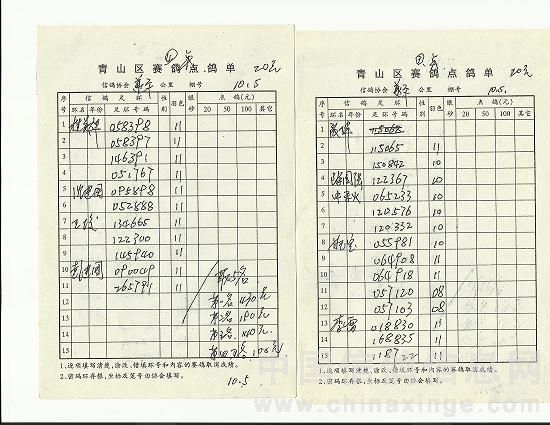 20元
青山区赛鸽点鸽单
信鸽协会 公里 棚号 10.5
序号 信鸽足环 性别 羽色 眼砂 点鸽(元)
环名 年份 足环号码 20 50 100 其它
1 058398 11
2 058397 11
3 146391 11
4 051767 11
5 098898 11
6 052888 11
7 134665 11
8 122300 11
9 145940 11
10 090009 11
11 065791 11 取5名
12 第一名
13 第2名 180元
14 第3名 140元
15
1.逐项填写清楚,涂改、错填环号和内容的赛鸽取消成绩。
2.密码环存根,坐标及笼号由协会填写。
10.5
20元
青山区赛鸽点鸽单
信鸽协会 公里 棚号 10.5.
序号 信鸽足环 性别 羽色 眼砂 点鸽(元)
环名 年份 足环号码 20 50 100 其它
1 115068
2 115065 11
3 150842 11
4 122367 10
5 065233 10
6 120576 10
7 120332 10
8 055981 10
9 064908 11
10 064918 11
11 057120 08
12 057103 08
13 李雷 018830 11
14 168835 11
15 118722 11
1.逐项填写清楚,涂改、错填环号和内容的赛鸽取消成绩。
2.密码环存根,坐标及笼号由协会填写。
中国信鸽信息网
www.chinaxinge.com